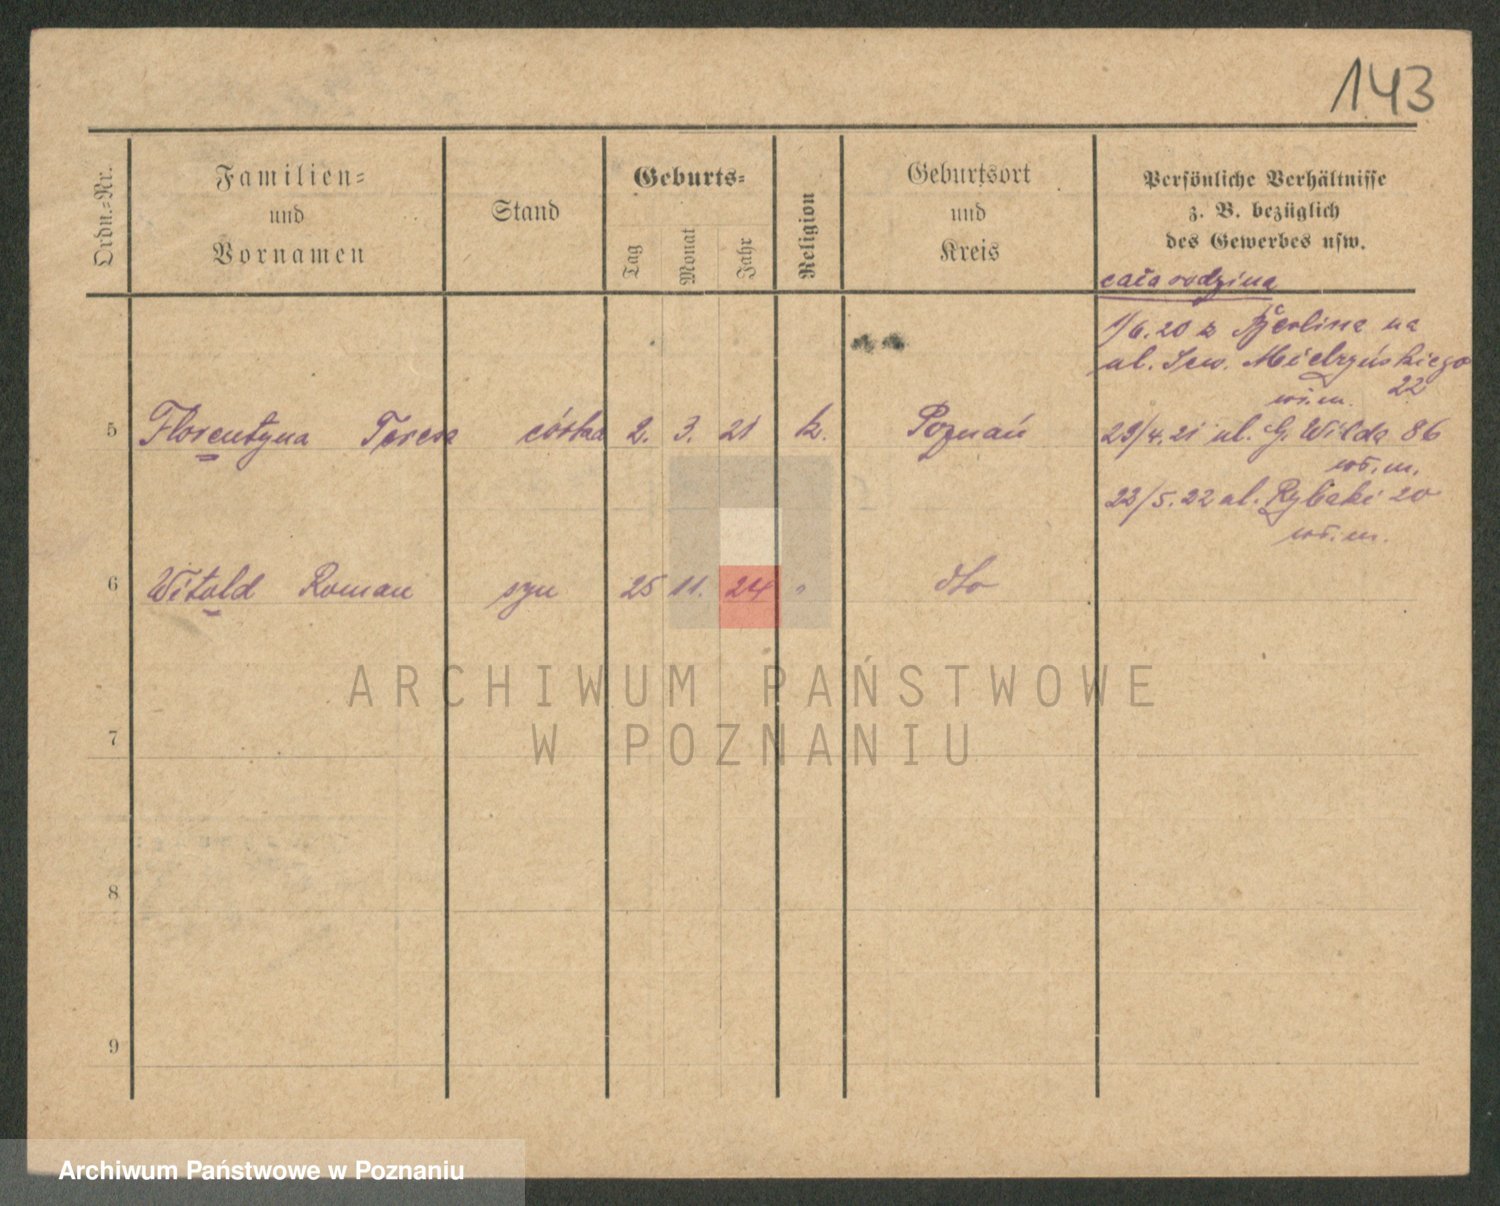 143
Ordn.-Nr.
Familien-
und
Vornamen
Stand
Geburts-
Tag
Monat
Jahr
Religion
Geburtsort
und
Kreis
Persönliche Verhältnisse
z. B. bezüglich
des Gewerbes usw.
cała rodzina
1/6.20 z Berlina na
ul. Sew. Mielżyńskiego
22
5 Florentyna Teresa córka 2. 3. 21 k. Poznań 29/4.21 ul. G. Wilda 86
wł. m.
23/5.22 ul. Rybaki 20
wł. m.
6 Witold Roman syn 25 11. 24 " dto
ARCHIWUM PAŃSTWOWE
W POZNANIU
7
8
9
Archiwum Państwowe w Poznaniu